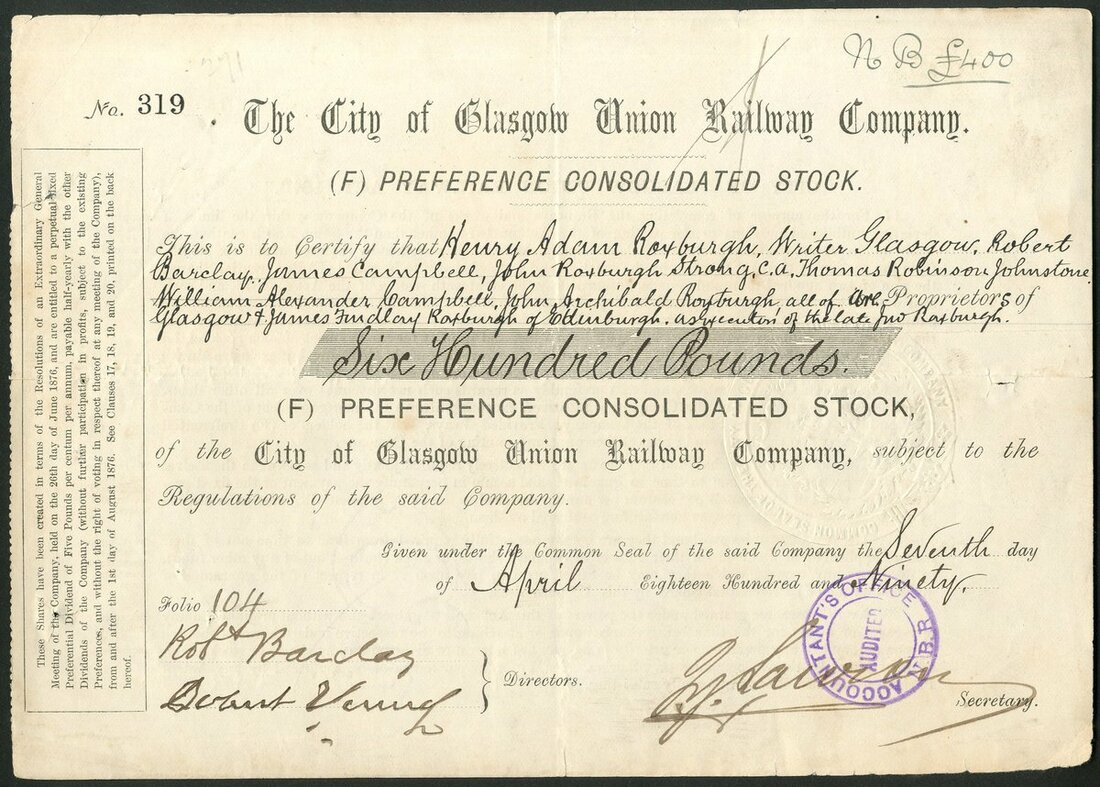 N B £400
No. 319
The City of Glasgow Union Railway Company.
(F) PREFERENCE CONSOLIDATED STOCK.
This is to Certify that Henry Adam Roxburgh, Writer Glasgow, Robert
Barclay, James Campbell, John Roxburgh Strong, C.A. Thomas Robinson Johnstone
William Alexander Campbell, John Archibald Roxburgh, all of are Proprietors of
Glasgow & James Findlay Roxburgh of Edinburgh. as of the late Jno Roxburgh.
Six Hundred Pounds.
(F) PREFERENCE CONSOLIDATED STOCK,
of the City of Glasgow Union Railway Company, subject to the
Regulations of the said Company.
Given under the Common Seal of the said Company the Seventh day
of April Eighteen Hundred and Ninety.
Folio 104
Robt Barclay
Robert
Directors.
Secretary.
ACCOUNTANT'S OFFICE N.B.R.
AUDITED
These Shares have been created in terms of the Resolutions of an Extraordinary General
Meeting of the Company, held on the 26th day of June 1876, and are entitled to a perpetual fixed
Preferential Dividend of Five Pounds per centum per annum, payable half-yearly with the other
Dividends of the Company (without further participation in profits, subject to the existing
Preferences, and without the right of voting in respect thereof at any meeting of the Company),
from and after the 1st day of August 1876. See Clauses 17, 18, 19, and 20, printed on the back
hereof.